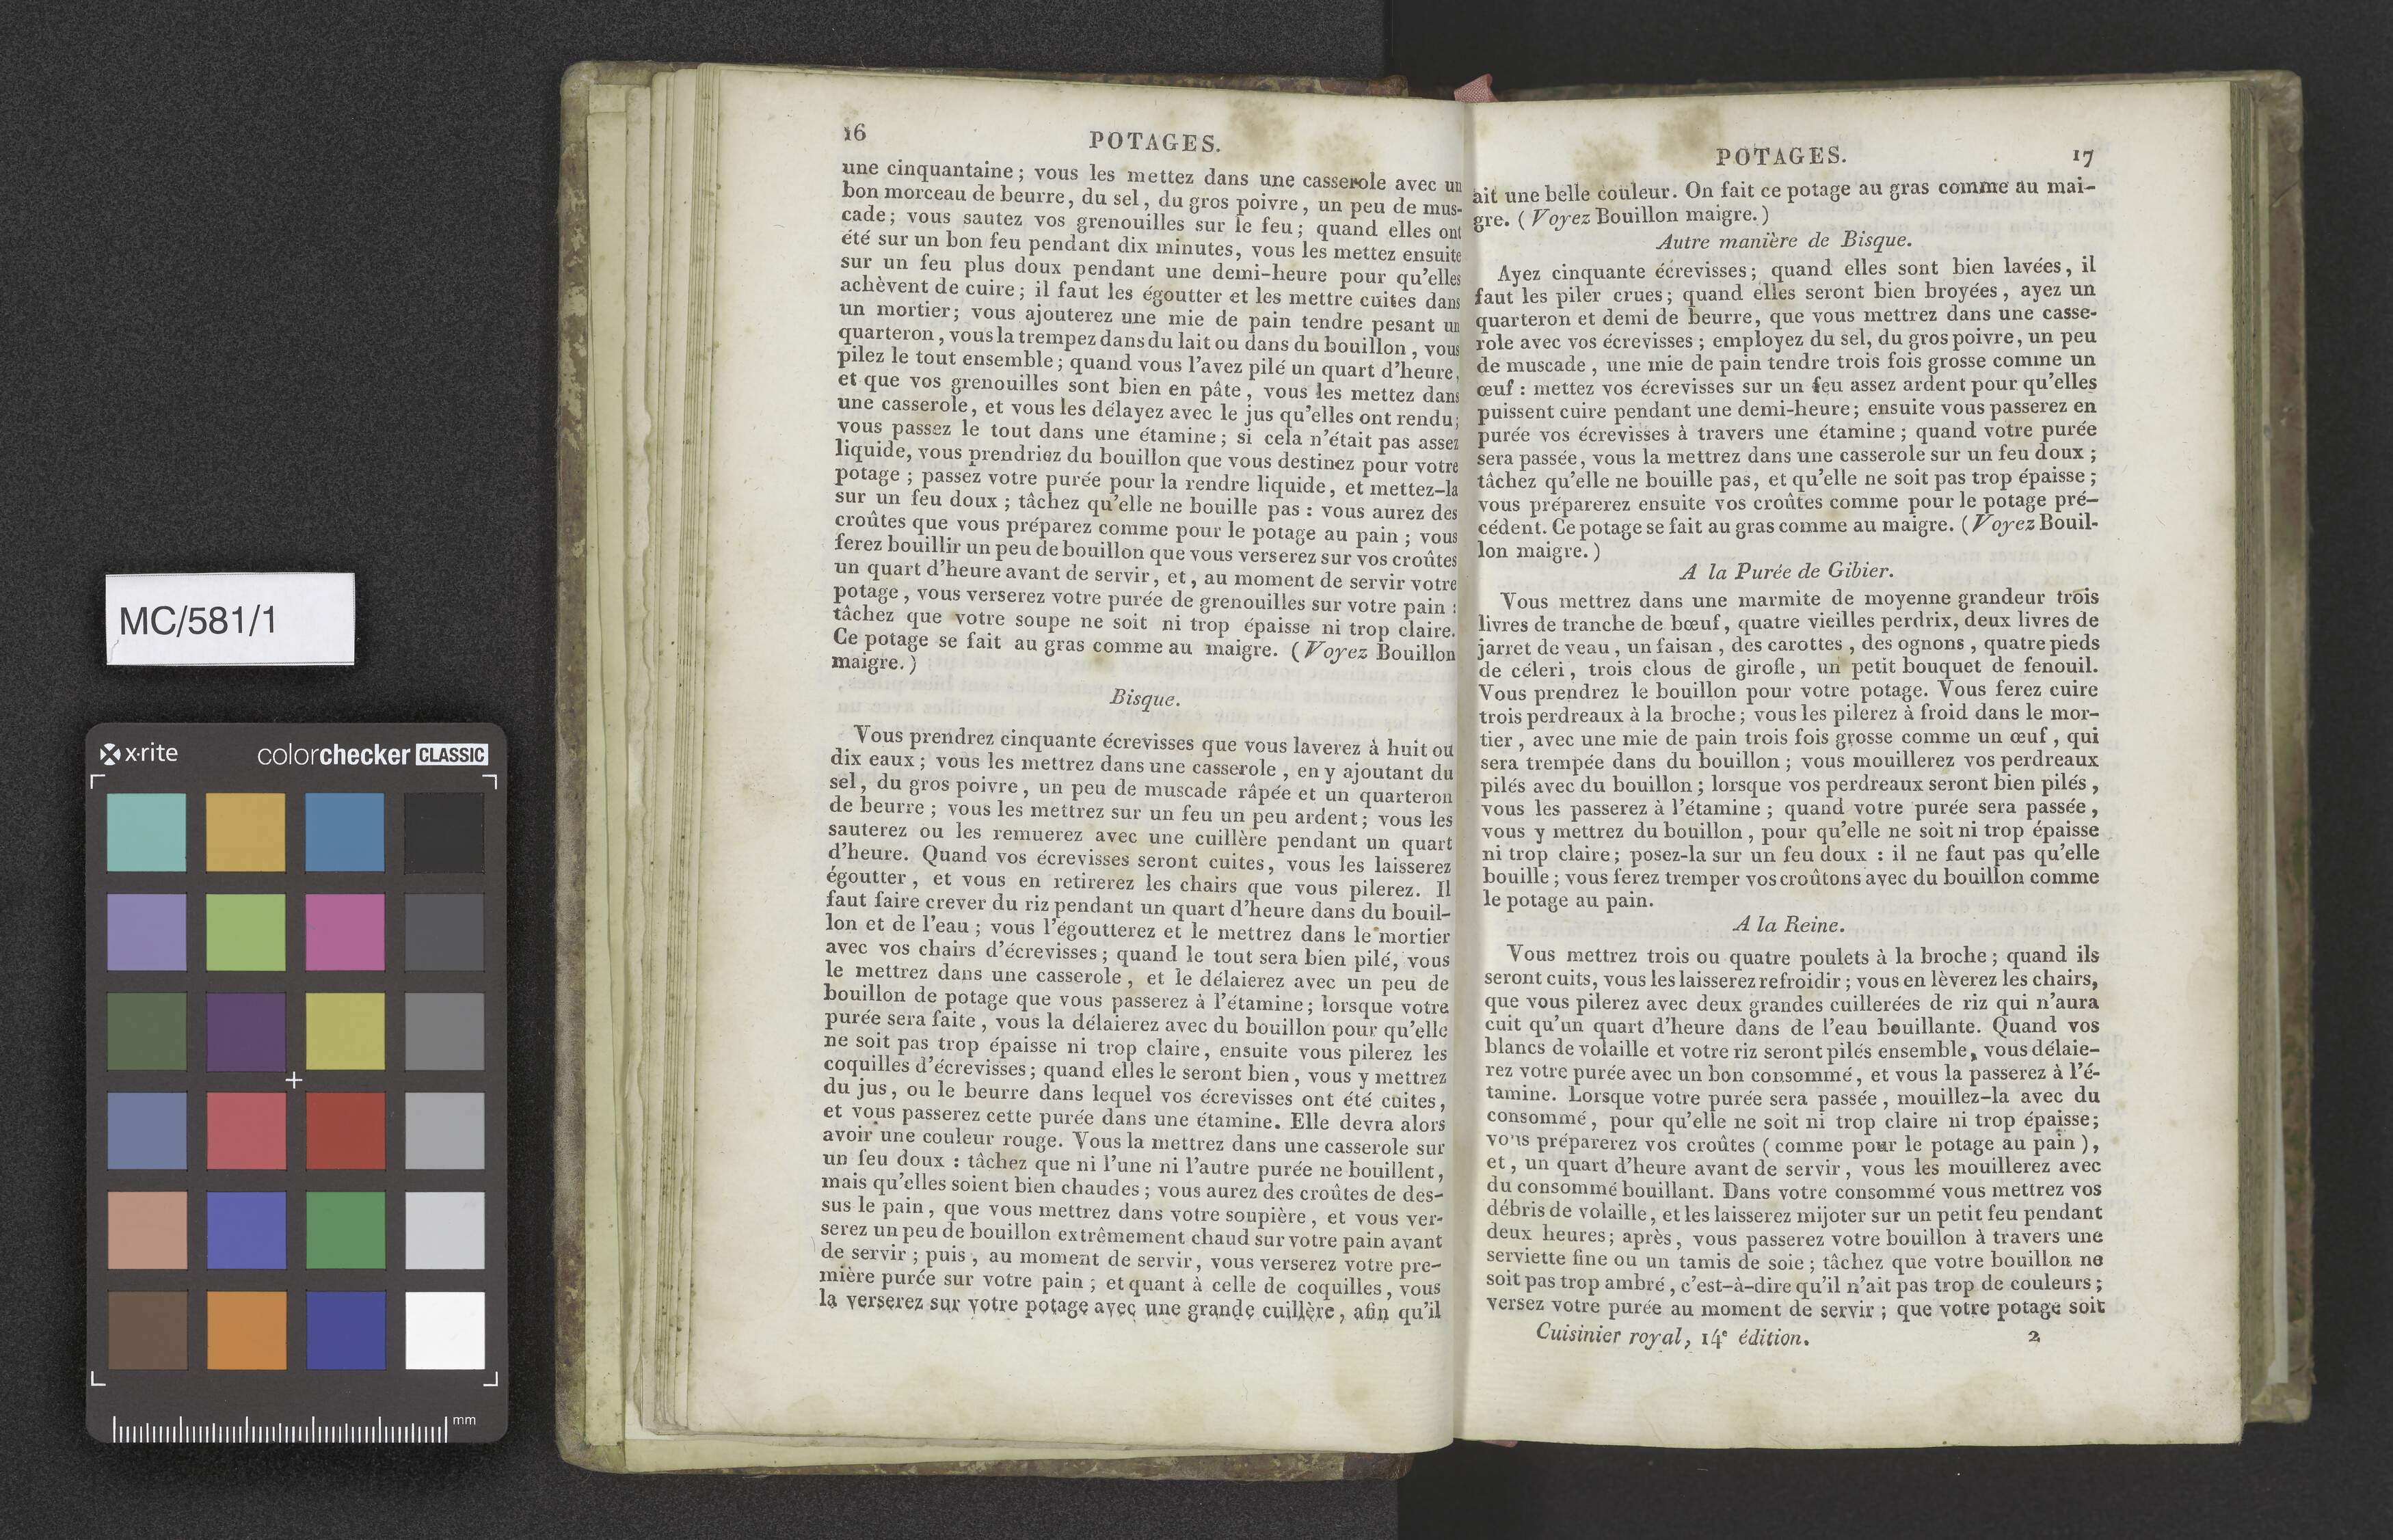 MC/581/1
x·rite
colorchecker CLASSIC
mm
16
POTAGES.
une cinquantaine ; vous les mettez dans une casserole avec un
bon morceau de beurre, du sel, du gros poivre, un peu de mus-
cade ; vous sautez vos grenouilles sur le feu ; quand elles ont
été sur un bon feu pendant dix minutes, vous les mettez ensuite
sur un feu plus doux pendant une demi-heure pour qu'elles
achèvent de cuire ; il faut les égoutter et les mettre cuites dans
un mortier ; vous ajouterez une mie de pain tendre pesant un
quarteron, vous la trempez dans du lait ou dans du bouillon, vous
pilez le tout ensemble ; quand vous l'avez pilé un quart d'heure,
et que vos grenouilles sont bien en pâte, vous les mettez dans
une casserole, et vous les délayez avec le jus qu'elles ont rendu ;
vous passez le tout dans une étamine ; si cela n'était pas assez
liquide, vous prendriez du bouillon que vous destinez pour votre
potage ; passez votre purée pour la rendre liquide, et mettez-la
sur un feu doux ; tâchez qu'elle ne bouille pas : vous aurez des
croûtes que vous préparez comme pour le potage au pain ; vous
ferez bouillir un peu de bouillon que vous verserez sur vos croûtes
un quart d'heure avant de servir, et, au moment de servir votre
potage, vous verserez votre purée de grenouilles sur votre pain :
tâchez que votre soupe ne soit ni trop épaisse ni trop claire.
Ce potage se fait au gras comme au maigre. (Voyez Bouillon
maigre.)
Bisque.
Vous prendrez cinquante écrevisses que vous laverez à huit ou
dix eaux ; vous les mettrez dans une casserole, en y ajoutant du
sel, du gros poivre, un peu de muscade râpée et un quarteron
de beurre ; vous les mettrez sur un feu un peu ardent ; vous les
sauterez ou les remuerez avec une cuillère pendant un quart
d'heure. Quand vos écrevisses seront cuites, vous les laisserez
égoutter, et vous en retirerez les chairs que vous pilerez. Il
faut faire crever du riz pendant un quart d'heure dans du bouil-
lon et de l'eau ; vous l'égoutterez et le mettrez dans le mortier
avec vos chairs d'écrevisses ; quand le tout sera bien pilé, vous
le mettrez dans une casserole, et le délaierez avec un peu de
bouillon de potage que vous passerez à l'étamine ; lorsque votre
purée sera faite, vous la délaierez avec du bouillon pour qu'elle
ne soit pas trop épaisse ni trop claire, ensuite vous pilerez les
coquilles d'écrevisses ; quand elles le seront bien, vous y mettrez
du jus, ou le beurre dans lequel vos écrevisses ont été cuites,
et vous passerez cette purée dans une étamine. Elle devra alors
avoir une couleur rouge. Vous la mettrez dans une casserole sur
un feu doux : tâchez que ni l'une ni l'autre purée ne bouillent,
mais qu'elles soient bien chaudes ; vous aurez des croûtes de des-
sus le pain, que vous mettrez dans votre soupière, et vous ver-
serez un peu de bouillon extrêmement chaud sur votre pain avant
de servir ; puis, au moment de servir, vous verserez votre pre-
mière purée sur votre pain ; et quant à celle de coquilles, vous
la verserez sur votre potage avec une grande cuillère, afin qu'il
POTAGES.
17
ait une belle couleur. On fait ce potage au gras comme au mai-
gre. (Voyez Bouillon maigre.)
Autre manière de Bisque.
Ayez cinquante écrevisses ; quand elles sont bien lavées, il
faut les piler crues ; quand elles seront bien broyées, ayez un
quarteron et demi de beurre, que vous mettrez dans une casse-
role avec vos écrevisses ; employez du sel, du gros poivre, un peu
de muscade, une mie de pain tendre trois fois grosse comme un
œuf : mettez vos écrevisses sur un feu assez ardent pour qu'elles
puissent cuire pendant une demi-heure ; ensuite vous passerez en
purée vos écrevisses à travers une étamine ; quand votre purée
sera passée, vous la mettrez dans une casserole sur un feu doux ;
tâchez qu'elle ne bouille pas, et qu'elle ne soit pas trop épaisse ;
vous préparerez ensuite vos croûtes comme pour le potage pré-
cédent. Ce potage se fait au gras comme au maigre. (Voyez Bouil-
lon maigre.)
A la Purée de Gibier.
Vous mettrez dans une marmite de moyenne grandeur trois
livres de tranche de bœuf, quatre vieilles perdrix, deux livres de
jarret de veau, un faisan, des carottes, des ognons, quatre pieds
de céleri, trois clous de girofle, un petit bouquet de fenouil.
Vous prendrez le bouillon pour votre potage. Vous ferez cuire
trois perdreaux à la broche ; vous les pilerez à froid dans le mor-
tier, avec une mie de pain trois fois grosse comme un œuf, qui
sera trempée dans du bouillon ; vous mouillerez vos perdreaux
pilés avec du bouillon ; lorsque vos perdreaux seront bien pilés,
vous les passerez à l'étamine ; quand votre purée sera passée,
vous y mettrez du bouillon, pour qu'elle ne soit ni trop épaisse
ni trop claire ; posez-la sur un feu doux : il ne faut pas qu'elle
bouille ; vous ferez tremper vos croûtons avec du bouillon comme
le potage au pain.
A la Reine.
Vous mettrez trois ou quatre poulets à la broche ; quand ils
seront cuits, vous les laisserez refroidir ; vous en lèverez les chairs,
que vous pilerez avec deux grandes cuillerées de riz qui n'aura
cuit qu'un quart d'heure dans de l'eau bouillante. Quand vos
blancs de volaille et votre riz seront pilés ensemble, vous délaie-
rez votre purée avec un bon consommé, et vous la passerez à l'é-
tamine. Lorsque votre purée sera passée, mouillez-la avec du
consommé, pour qu'elle ne soit ni trop claire ni trop épaisse ;
vous préparerez vos croûtes (comme pour le potage au pain),
et, un quart d'heure avant de servir, vous les mouillerez avec
du consommé bouillant. Dans votre consommé vous mettrez vos
débris de volaille, et les laisserez mijoter sur un petit feu pendant
deux heures ; après, vous passerez votre bouillon à travers une
serviette fine ou un tamis de soie ; tâchez que votre bouillon ne
soit pas trop ambré, c'est-à-dire qu'il n'ait pas trop de couleurs ;
versez votre purée au moment de servir ; que votre potage soit
Cuisinier royal, 14e édition.
2